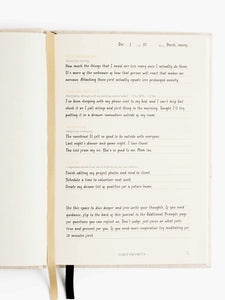 How much the things that I avoid are less scary once I actually do them.
It's more of the unknown of how that person will react that makes me
nervous. Attacking these first actually equals less prolonged anxiety.
I've been sleeping with my phone next to my bed, and I can't help but
check it as I fall asleep and first thing in the morning. Tonight I'll try
putting it in a drawer somewhere outside of my room.
The sunshine! It felt so good to be outside with everyone.
Last night's dinner and game night. I love these!
The text from my sis. She's so good to me. Mom too.
Finish editing my project photos and send to client.
Schedule a time to volunteer next week.
Create my dream list of qualities for a future home.
Use this space to dive deeper and write your thoughts. If you need
guidance, flip to the back of this journal to the Additional Prompts page
for questions you can reflect on. Don't judge, just focus on what feels
true and present for you. If you need more inspiration try meditating for
10 minutes first.